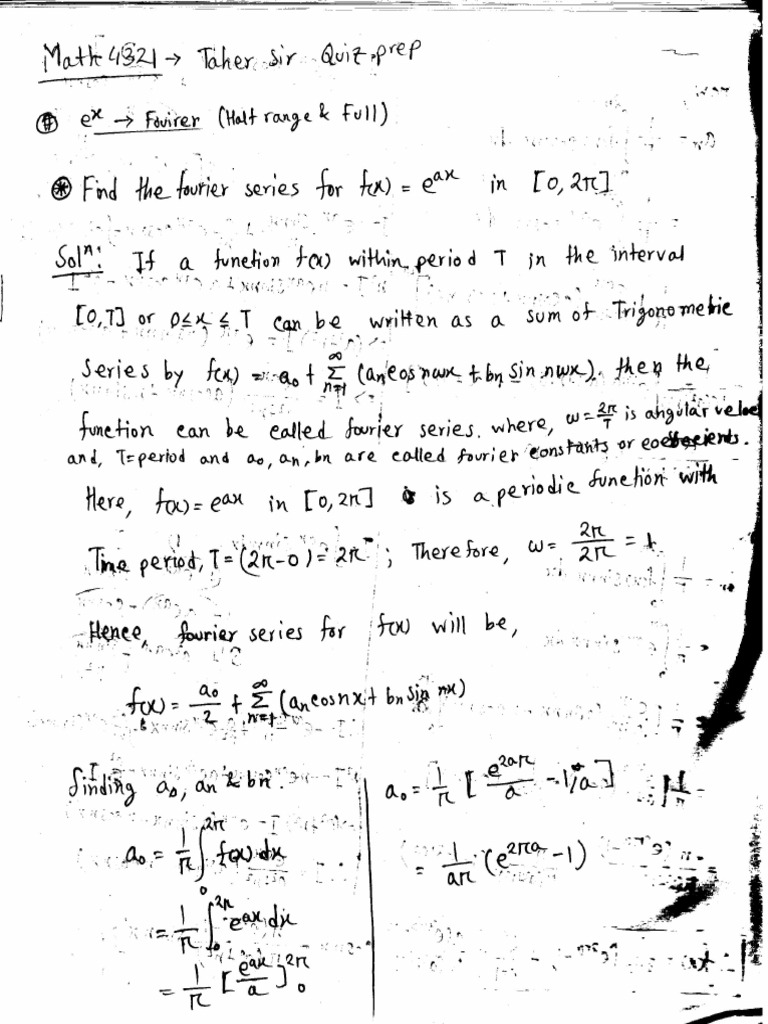 Math 4321 → Taher Sir Quiz prep
e^x → Fourier (Half range & Full)
Find the fourier series for f(x) = e^{ax} in [0, 2π]
Sol^n: If a function f(x) within period T in the interval
[0,T] or 0≤x≤T can be written as a sum of Trigonometric
Series by f(x) = a_0 + Σ_{n=1}^{∞} (a_n cos nωx + b_n sin nωx). then the
function can be called fourier series. where, ω = 2π/T is angular veloc
and, T=period and a_0, a_n, b_n are called fourier constants or coefficients.
Here, f(x) = e^{ax} in [0, 2π] is a periodic function with
Time period, T = (2π-0) = 2π ; Therefore, ω = 2π/2π = 1
Hence, fourier series for f(x) will be,
f(x) = a_0/2 + Σ_{n=1}^{∞} (a_n cos nx + b_n sin nx)
finding a_0, a_n & b_n.
a_0 = 1/π ∫_0^{2π} f(x) dx
= 1/π ∫_0^{2π} e^{ax} dx
= 1/π [e^{ax}/a]_0^{2π}
a_0 = 1/π [e^{2aπ}/a - 1/a]
= 1/aπ (e^{2πa} - 1)